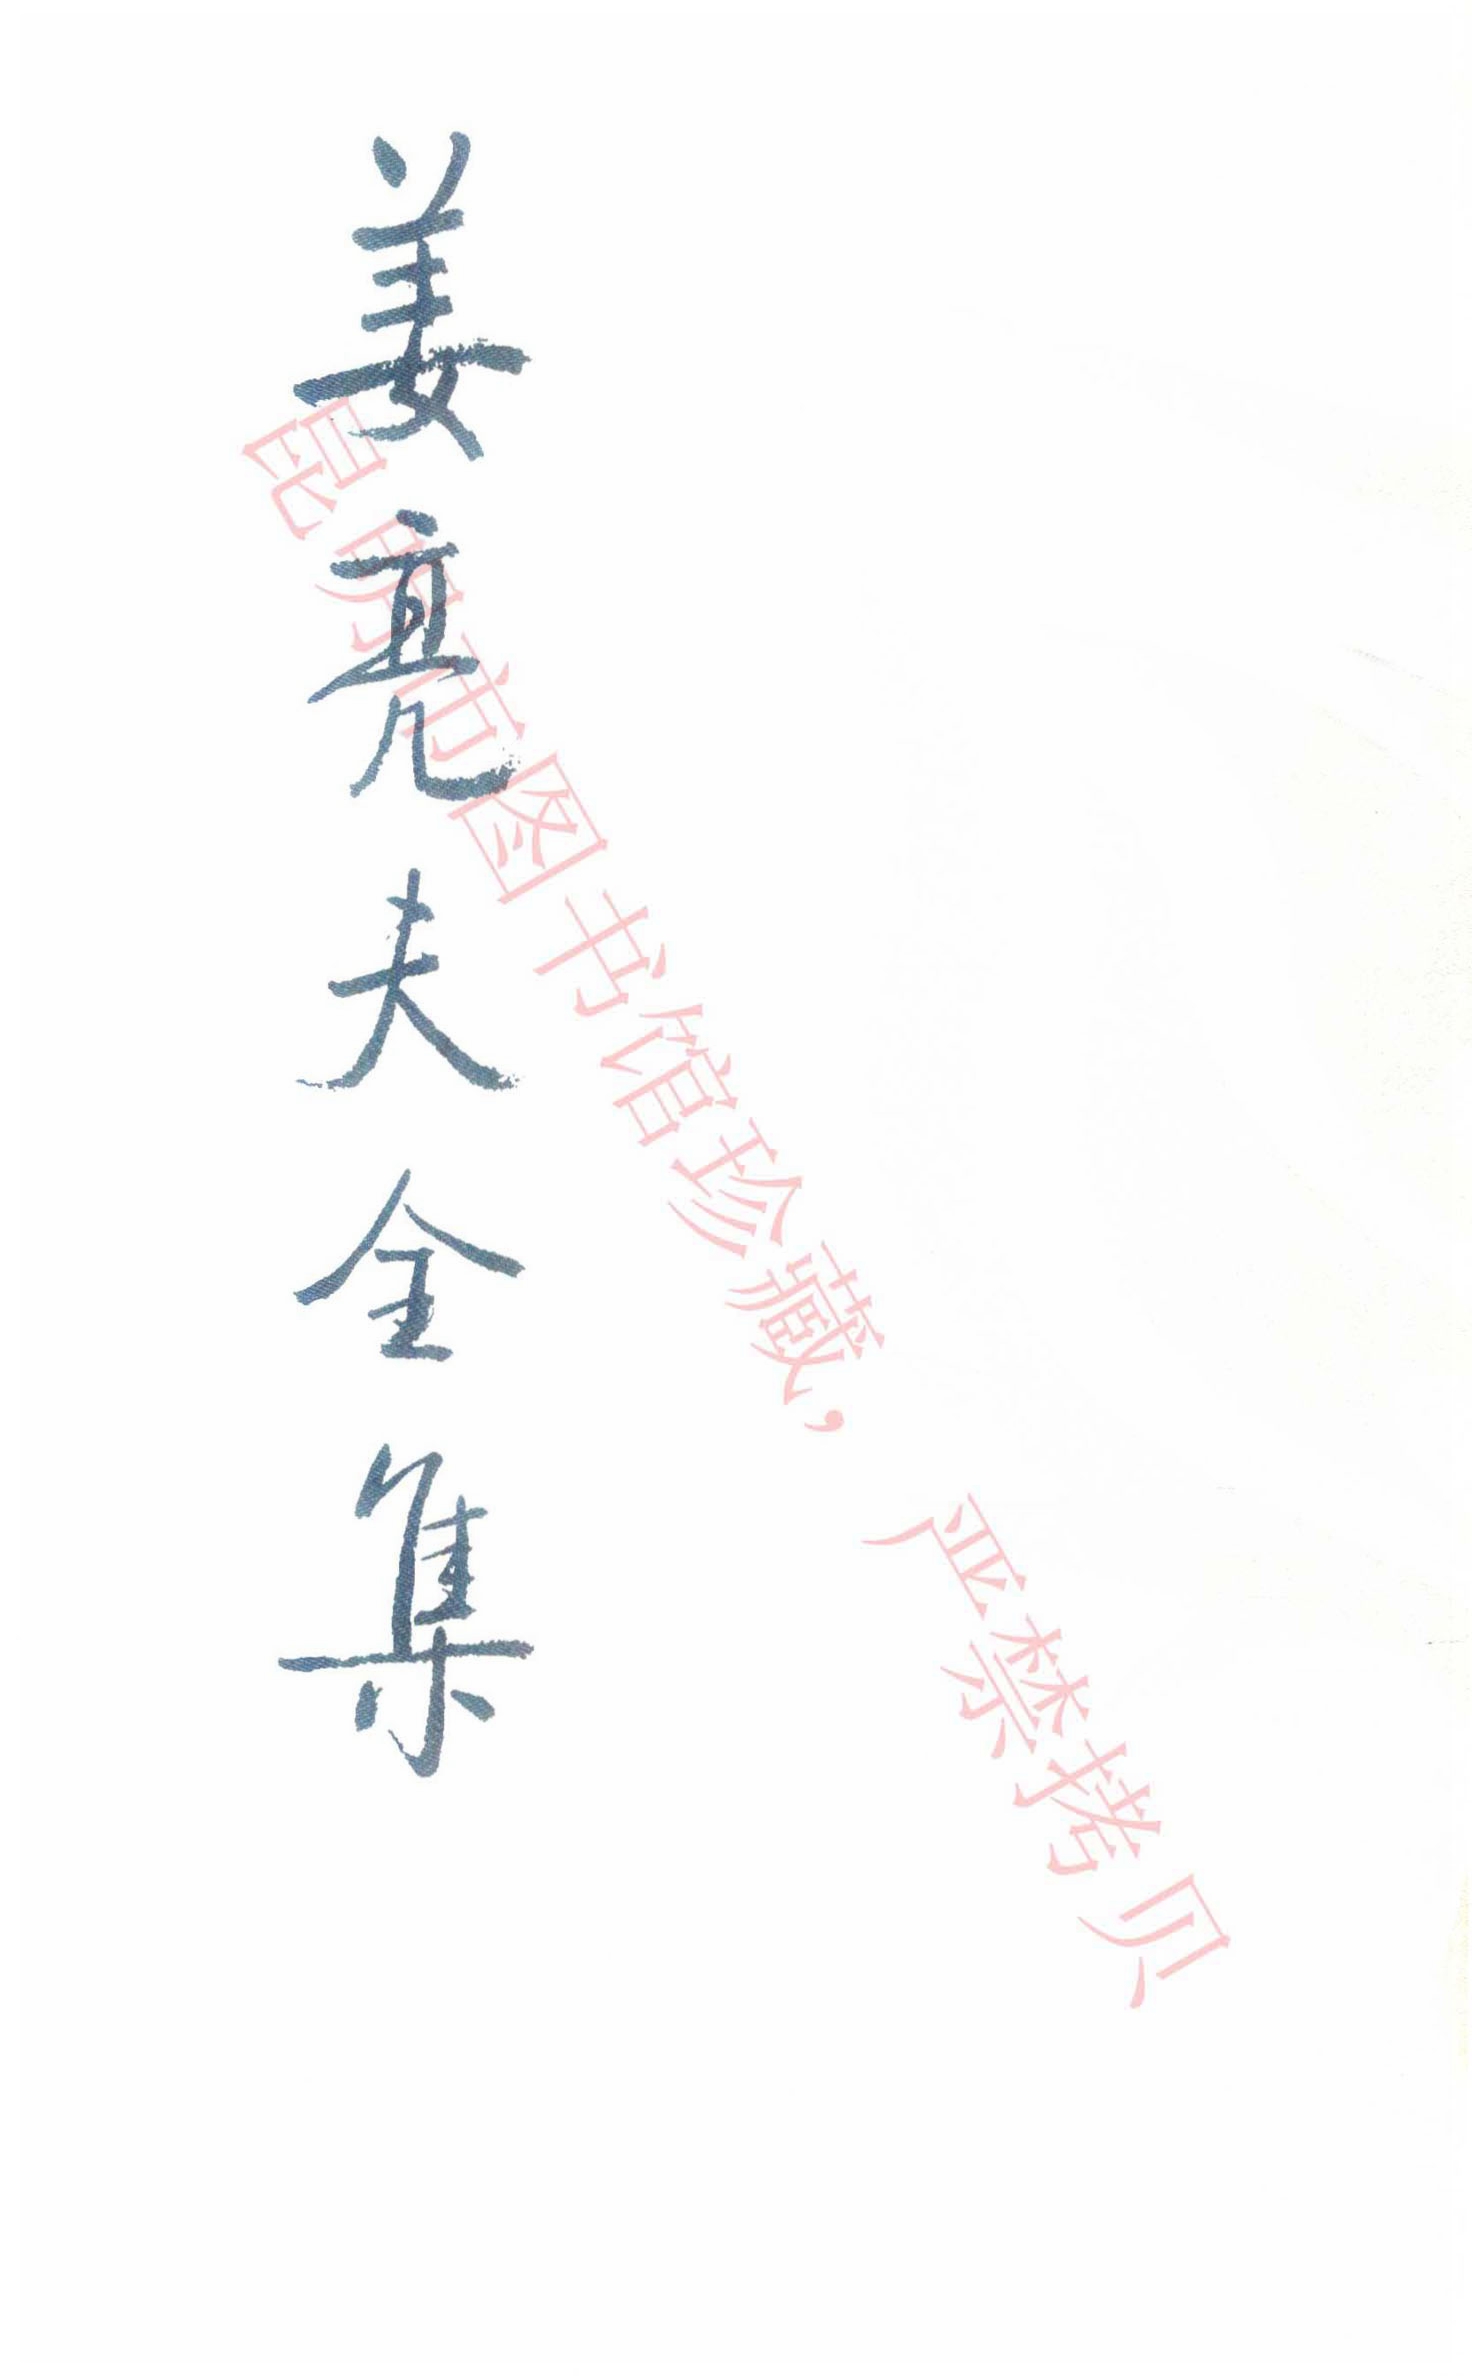 姜亮夫全集
昆明市图书馆珍藏，
严禁拷贝